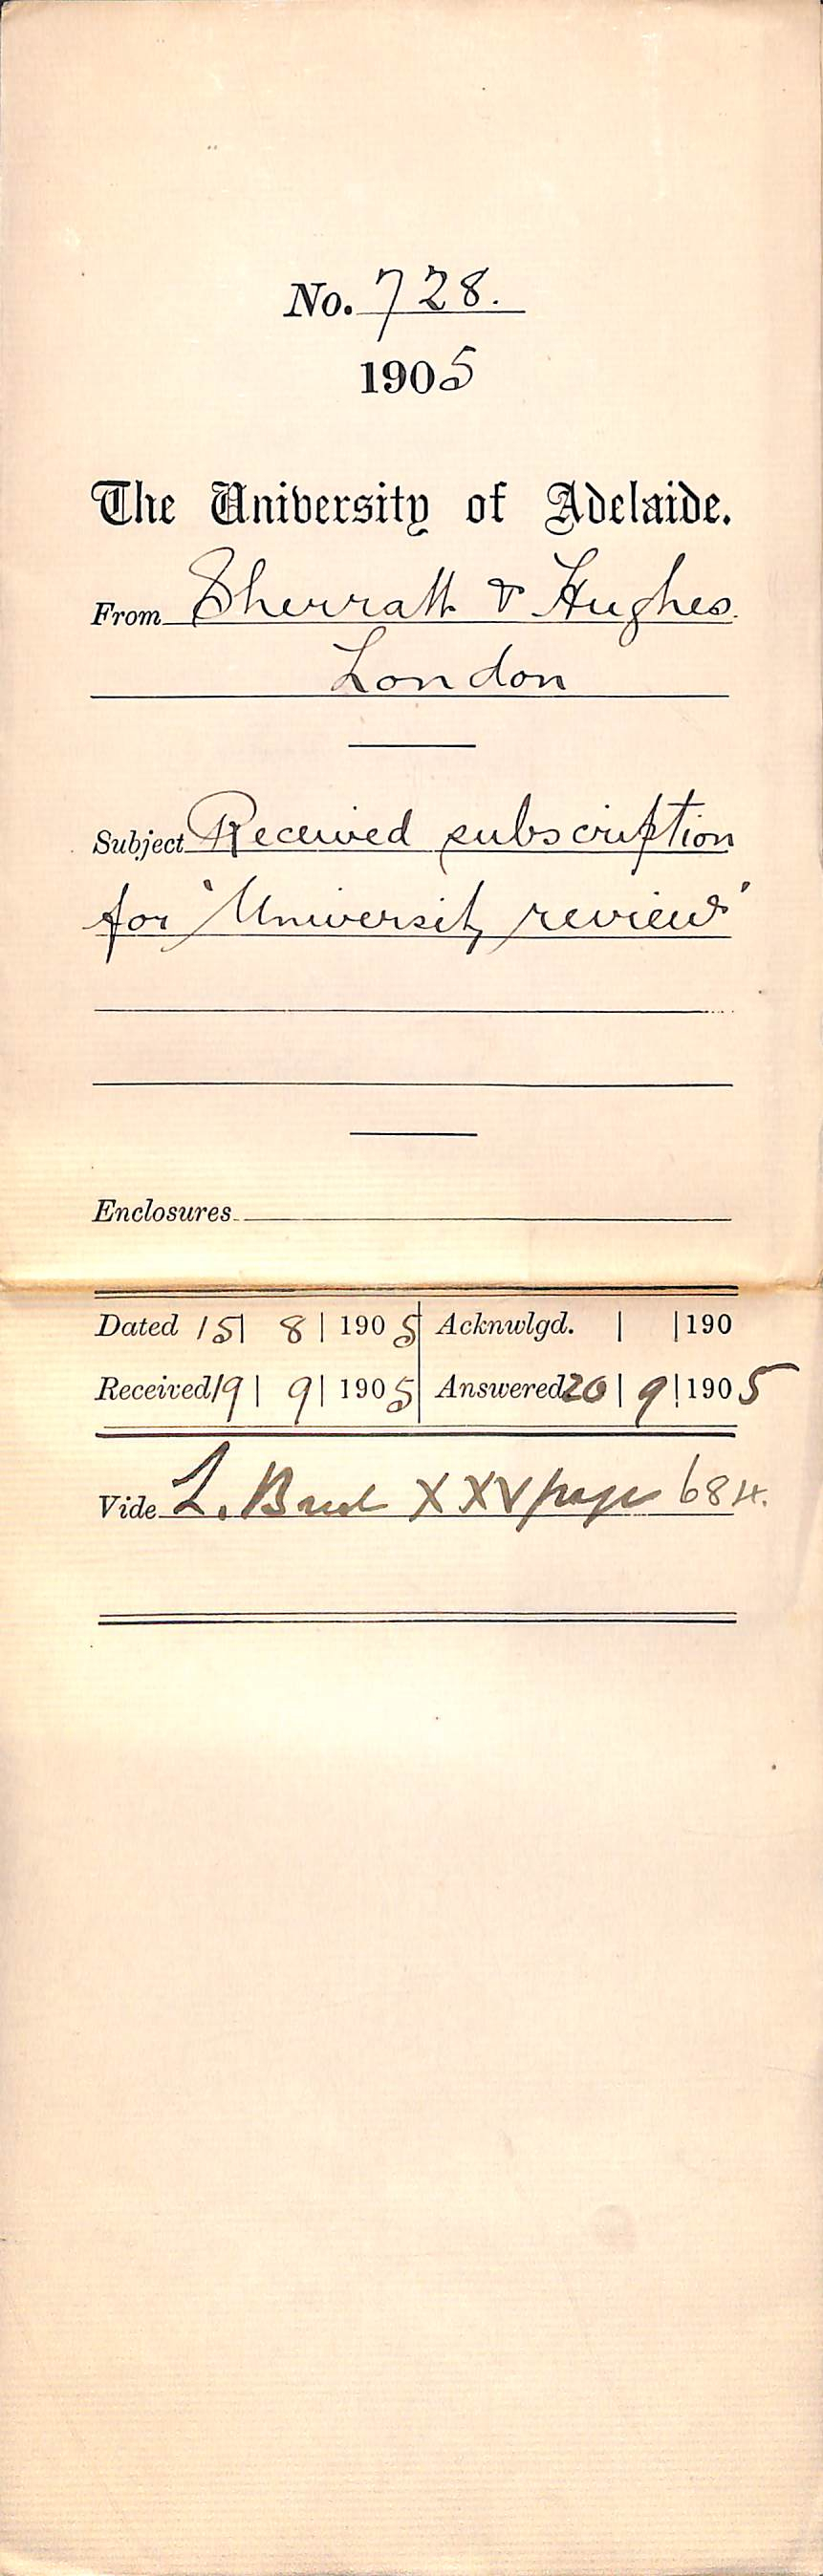 No. 728.
1905
The University of Adelaide.
From Sherratt & Hughes.
London
Subject Received subscription
for 'University review'
Enclosures
Dated 15| 8| 1905 Acknwlgd. | |190
Received 19| 9| 1905 Answered 20| 9| 1905
Vide L. Book XXV page 684.